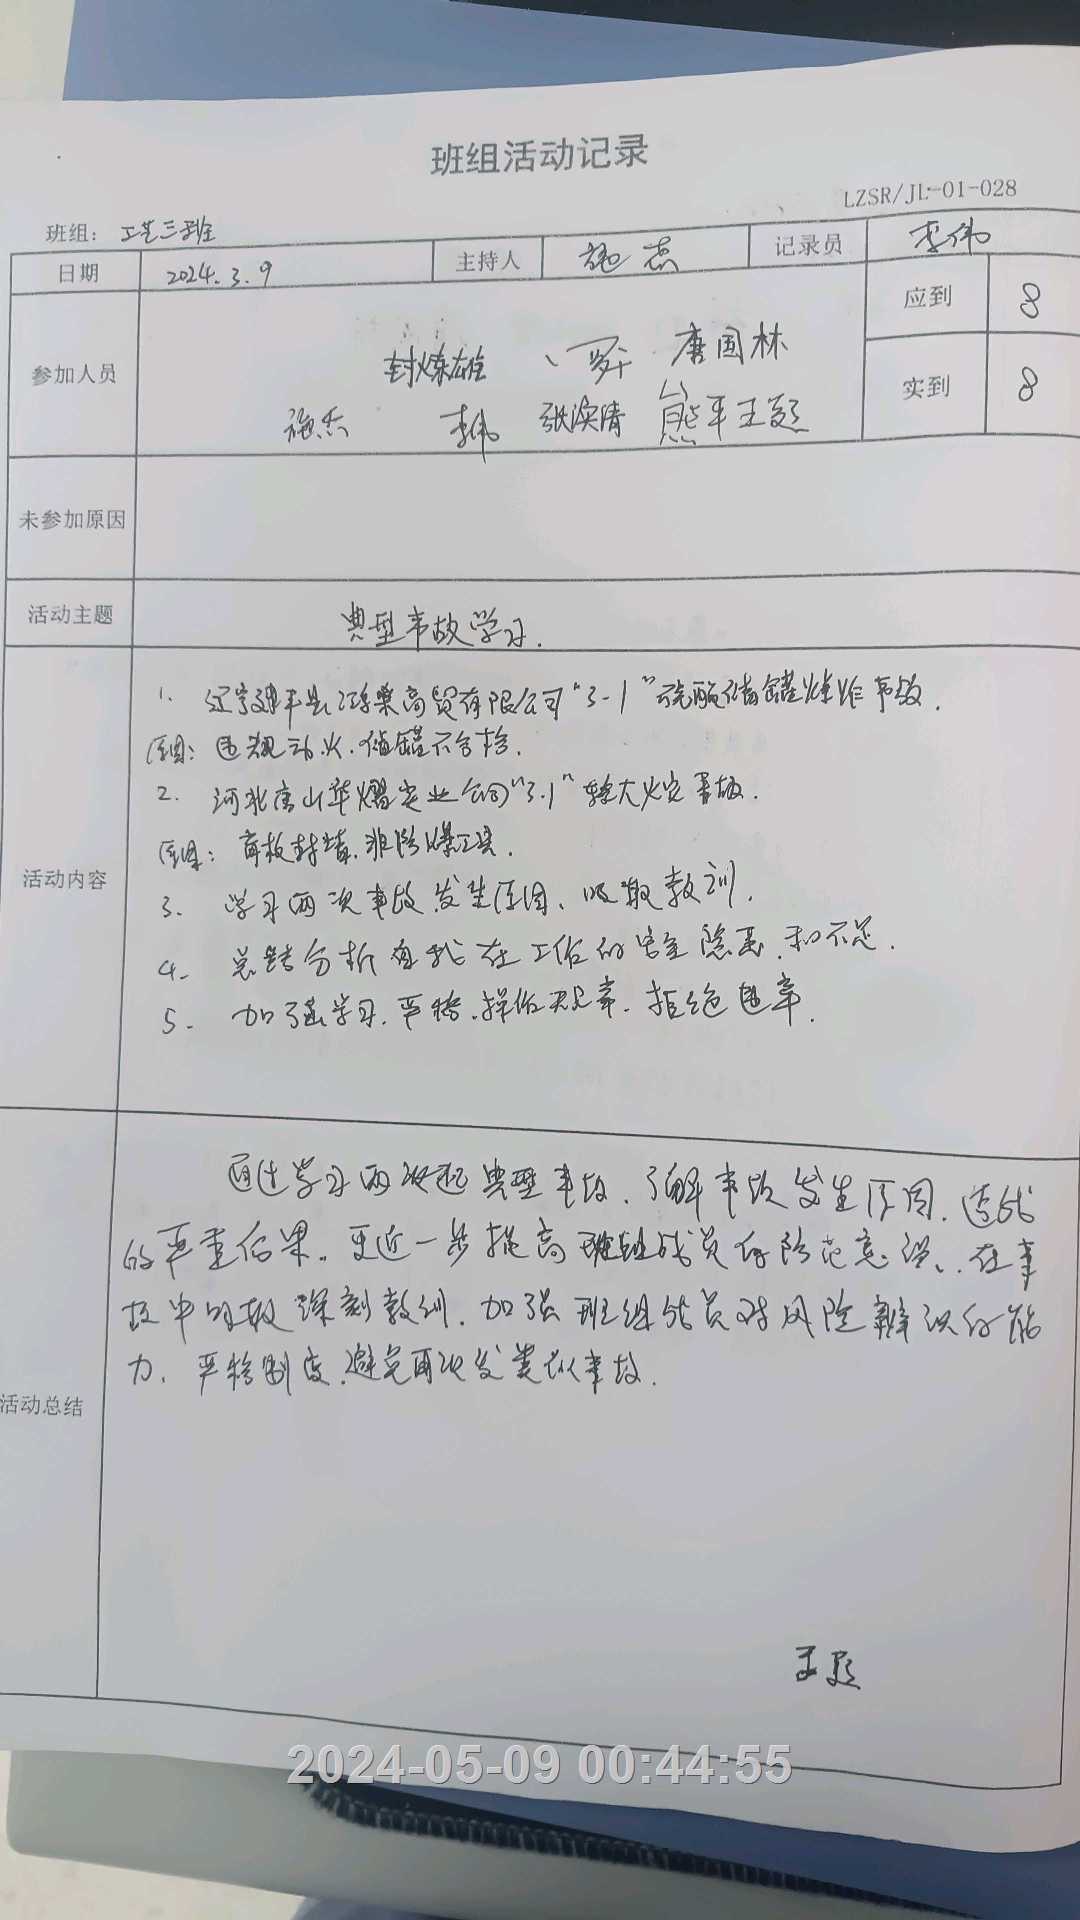 班组活动记录
LZSR/JL-01-028
班组：工艺三班
日期 2024.3.9 主持人 施杰 记录员 李伟
参加人员 封炼雄 唐国林 应到 8
施杰 李伟 张涣清 熊平 王 实到 8
未参加原因
活动主题 典型事故学习.
活动内容
1. 辽宁建平县鸿燊商贸有限公司“3-1”硫酸储罐爆炸事故.
原因：违规动火.储罐不合格.
2. 河北唐山华熠实业公司“3.1”较大火灾事故.
原因：盲板封堵.非防爆工具.
3. 学习两次事故发生原因、吸取教训.
4. 总结分析自我在工作的安全隐患.和不足.
5. 加强学习.严格.操作规章.拒绝违章.
活动总结
通过学习两次起典型事故.了解事故发生原因.造成
的严重后果.更近一步提高班组成员的防范意识.在事
故中吸取深刻教训.加强班组成员对风险辨识的能
力.严格制度.避免再次发类似事故.
王
2024-05-09 00:44:55